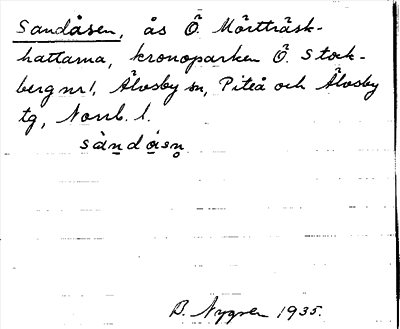 Sandåsen, ås Ö. Mörtträsk-
hattarna, kronoparken Ö. Stock-
berg nr 1, Älvsby sn, Piteå och Älvsby
tg, Norrb. l.
sàndåsn̥
B. Nygren 1935.